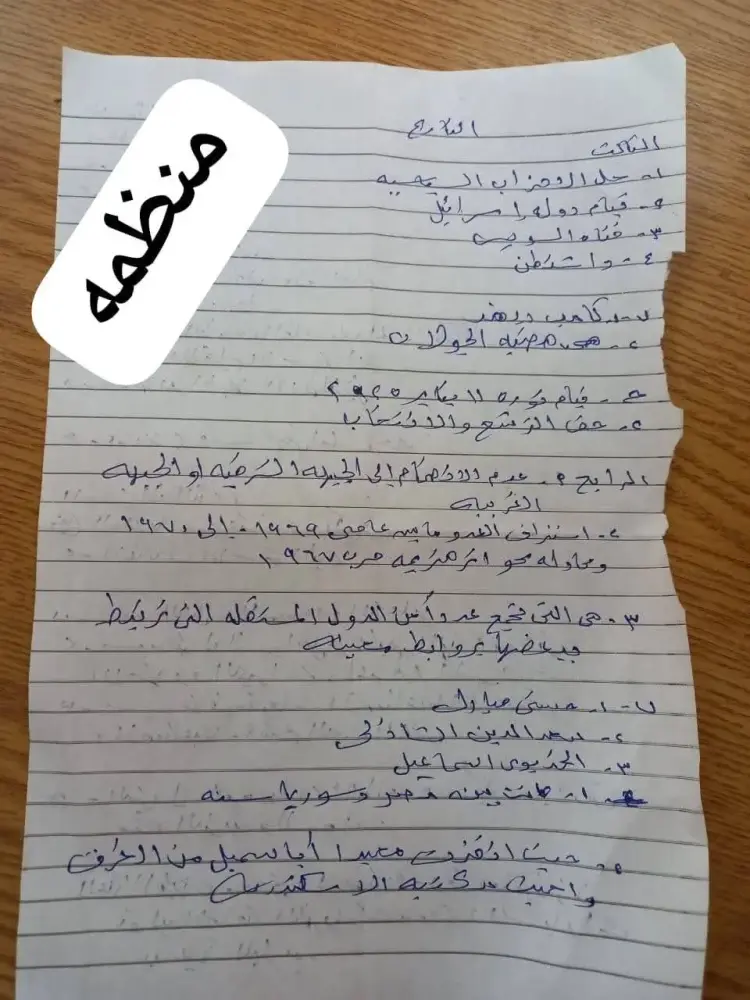 منظمه
التاريخ
الثالث
١- حل الاحزاب السياسيه
٢- قيام دوله إسرائيل
٣- قناه السويس
٤- واشنطن
ب-١- كامب ديفيد
٢- هى هضبه الجولان
ج - قيام ثوره ٢٥ يناير
٢- حق الترشح والانتخاب
الرابع - عدم الانضمام إلى الجبهه الشرقيه او الجبهه
الغربيه
٢- استنزاف العدو ما بين عامى ١٩٦٩ - إلى ١٩٧٠
ومحاوله محو اثر هزيمه حرب ١٩٦٧
٣- هى التى تجمع عدداً من الدول المستقله التى تربط
بعضها بروابط معينه
ب- ١- حسنى مبارك
٢- سعد الدين الشاذلى
٣- الخديوى اسماعيل
١- كانت بين مصر وسوريا سنه
٢- حيث انقذت معبد أبا سمبل من الغرق
واحيت مكتبه الاسكندريه